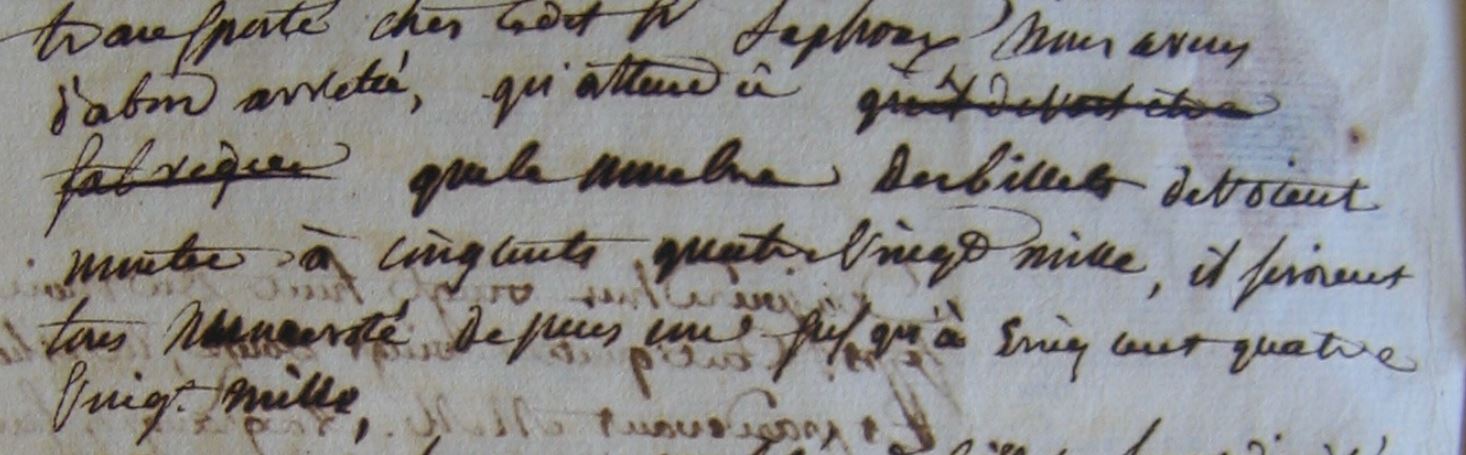 transporté chez ledit Sr Saphoux nous avons
d'abord arreté, qu'attendû qu'il devoit etre
fabriquer que le nombre des billets devoient
monter à cinq cents quatre vingt mille, il seroient
tous numeroté depuis un jusqu'à cinq cent quatre
vingt mille,